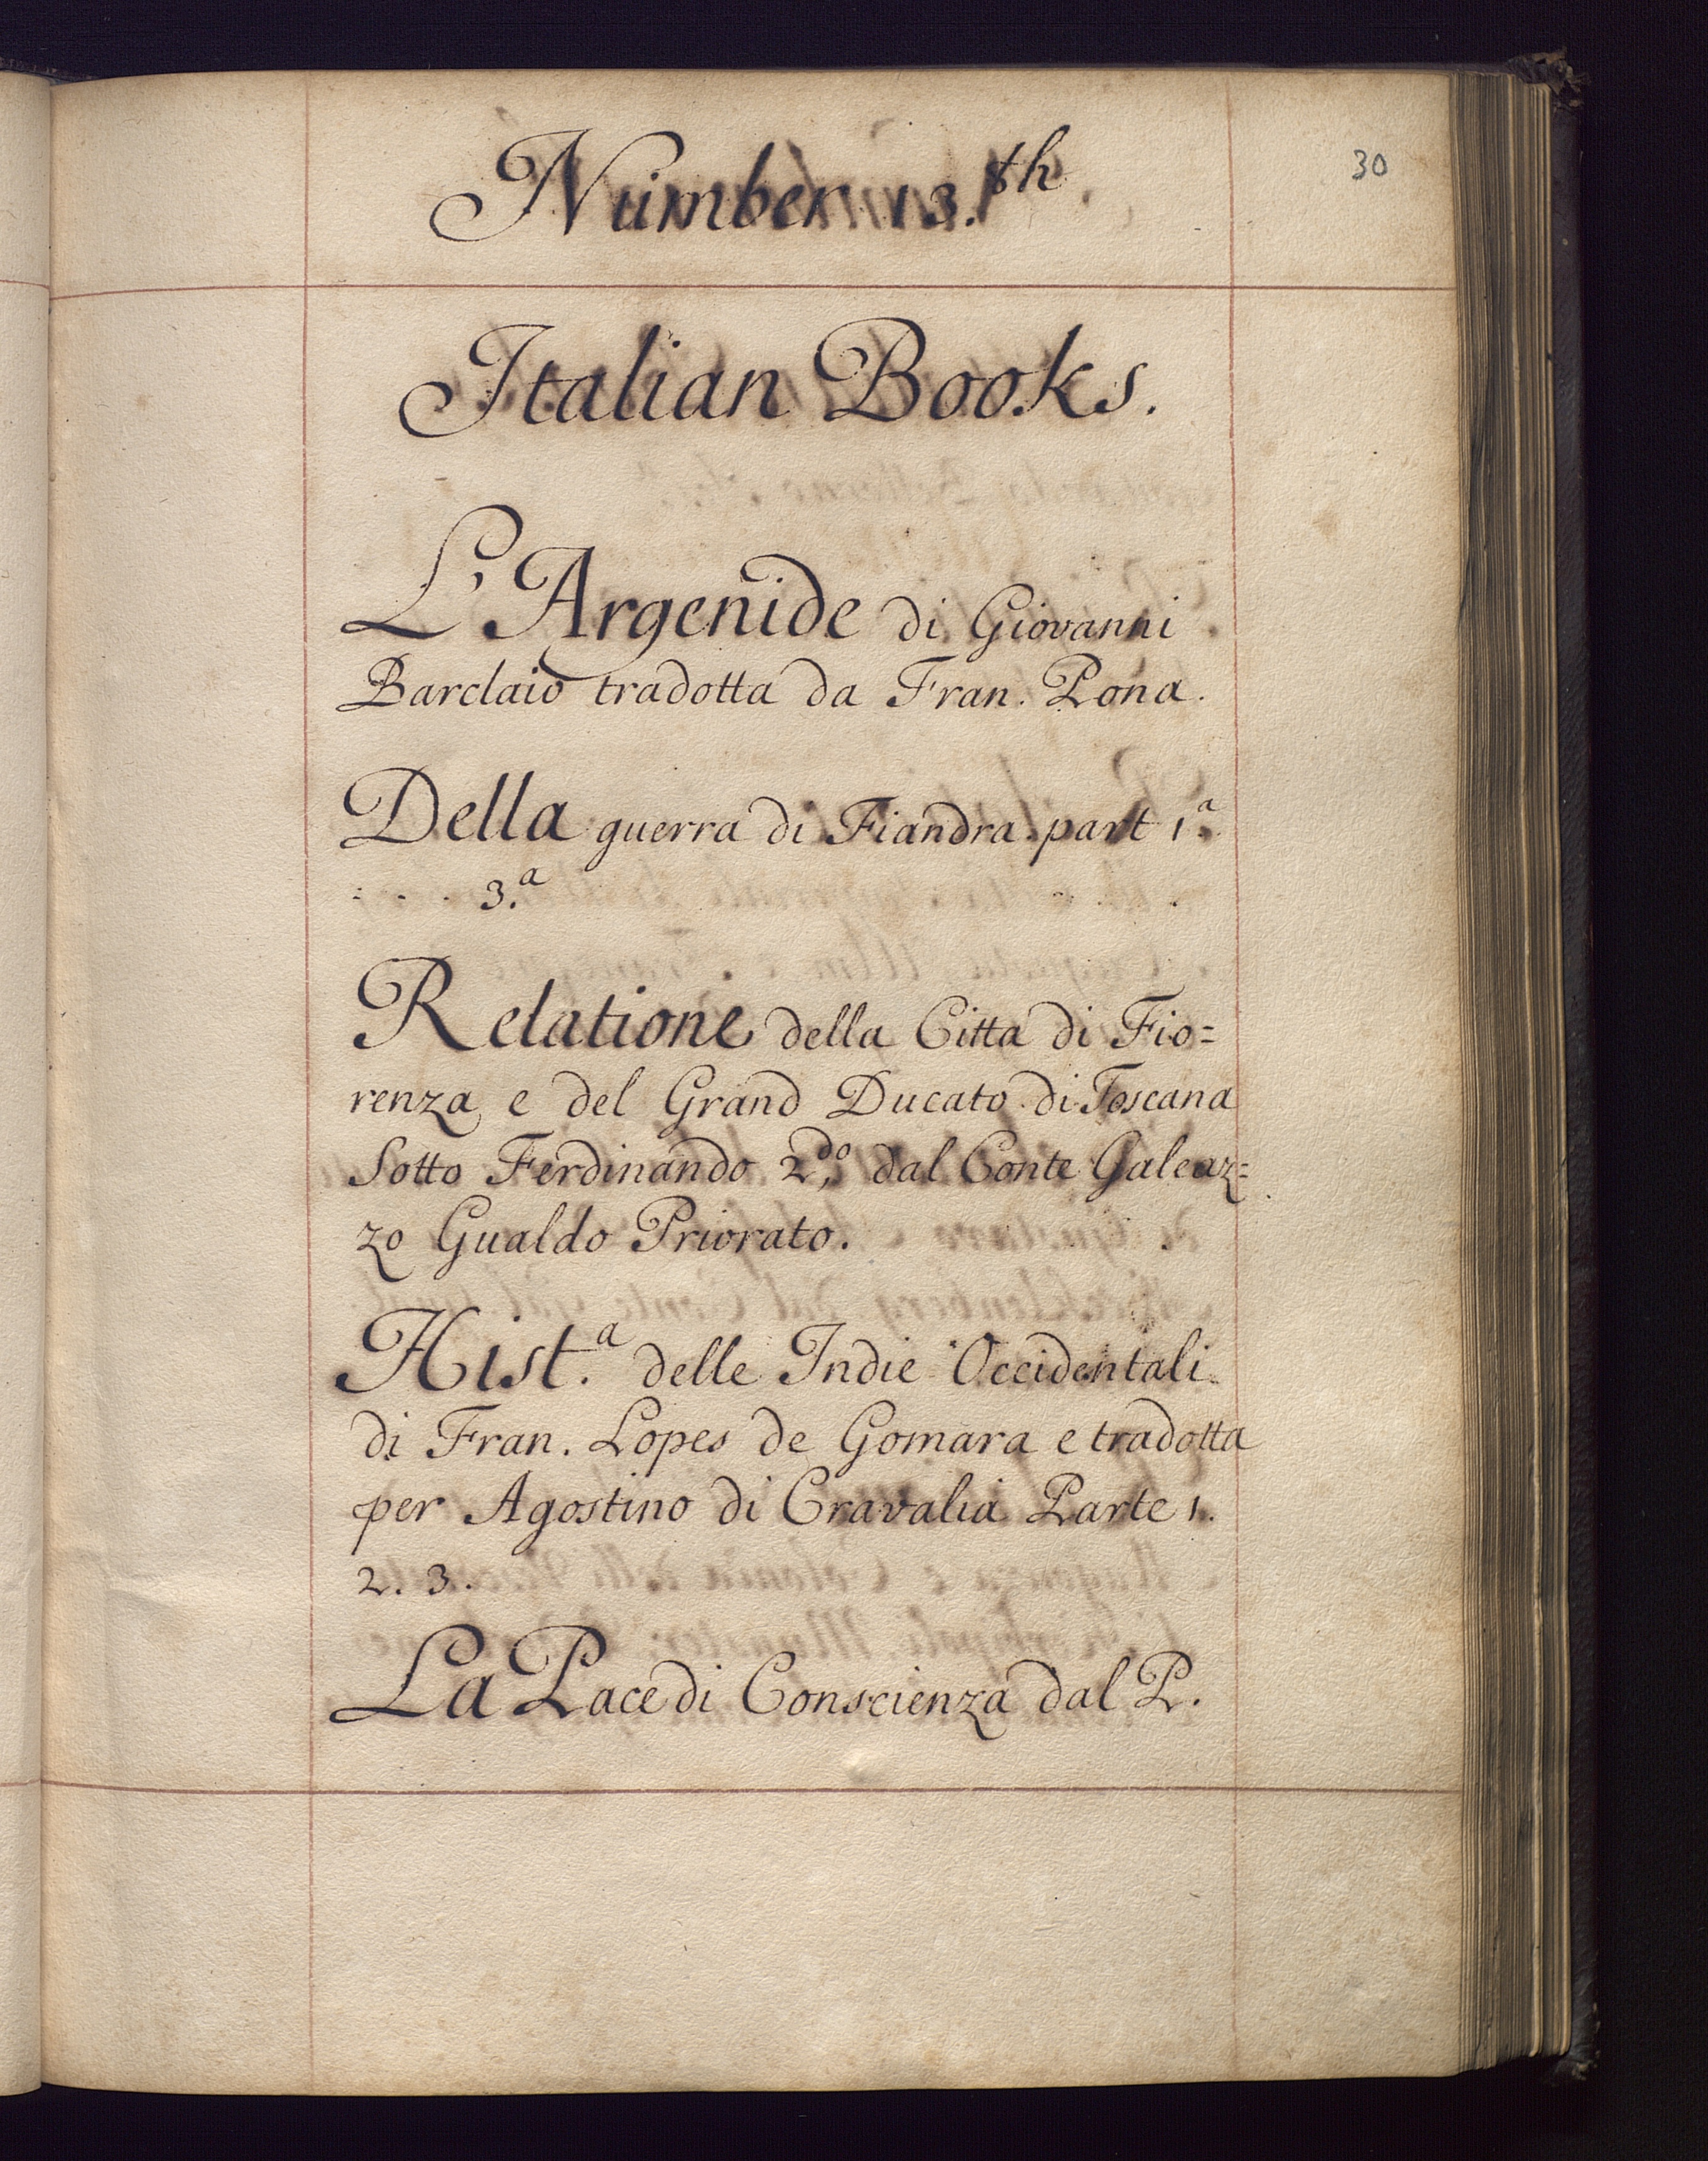 30
Number 13.th
Italian Books.
L'Argenide di Giovanni
Barclaio tradotta da Fran. Pona.
Della guerra di Fiandra part 1.a
3.a
Relatione della Citta di Fio=
renza e del Grand Ducato di Toscana
Sotto Ferdinando 2.do dal Conte Galeaz=
zo Gualdo Priorato.
Hist.a delle Indie Occidentali
di Fran. Lopes de Gomara e tradotta
per Agostino di Cravalia Parte 1.
2. 3.
La Pace di Conscienza dal P.